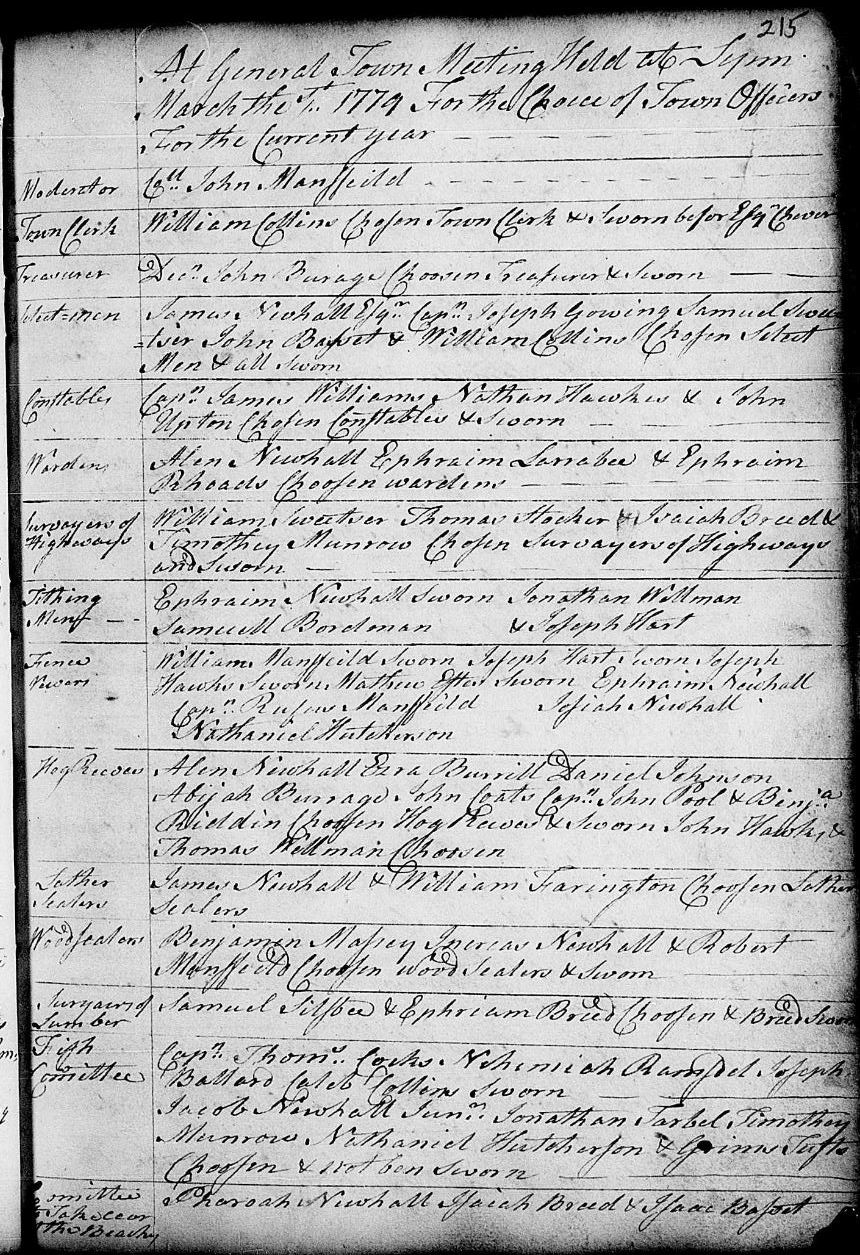 215
At General Town Meeting Held at Lynn
March the 1st 1779 For the Choice of Town Officers
For the Current year
Moderator Coll John Mansfeild
Town Clerk William Collins Chosen Town Clerk & Sworn befor Esqr Chever
Treasurer Decn John Burage Choosen Treasurer & Sworn
Select=men James Newhall Esqr Capn Joseph Gowing Samuel Swee
=tser John Basset & William Collins Chosen Select
Men & all Sworn
Constables Capn James Williams Nathan Hawkes & John
Upton Chosen Constables & Sworn
Wardens Alen Newhall Ephraim Larrabee & Ephraim
Rhoads Choosen wardens
Survayers of William Sweetser Thomas Stocker & Isaiah Breed &
Highways Timothey Munrow Chosen Survayers of Highways
and Sworn
Tithing Ephraim Newhall Sworn Jonathan Willman
Men Samuell Bordman & Joseph Hart
Fence William Mansfeild Sworn Joseph Hart Sworn Joseph
Hawks Sworn Mathew Sworn Ephraim Newhall
Capn Rufus Mansfeild Josiah Newhall
Nathaniel Hutcherson
Hog Reeves Alen Newhall Ezra Burrill Daniel Johnson
Abijah Burrage John Coats Capn John Pool & Benja
Riddin Choosen Hog Reeves & Sworn John Hawks &
Thomas Wellman Choosen
Lather James Newhall & William Farington Choosen Lather
Sealers Sealers
Wood sealers Benjamin Massey Increas Newhall & Robert
Mansfeild Choosen wood Sealers & Sworn
Survaiers of Samuel Silsbee & Ephriam Breed Choosen & Breed Sworn
Lumber
Fish Capn Thoms Cocks Nehemiah Ramsdel Joseph
Comittee Ballard Caleb Collins Sworn
Jacob Newhall Junr Jonathan Tarbel Timothey
Munrow Nathaniel Hutcherson & Grimes Tufts
Choosen & not ben Sworn
Comittee Pharoah Newhall Isaiah Breed & Isaac Basset
to Take cear
of the Beachs